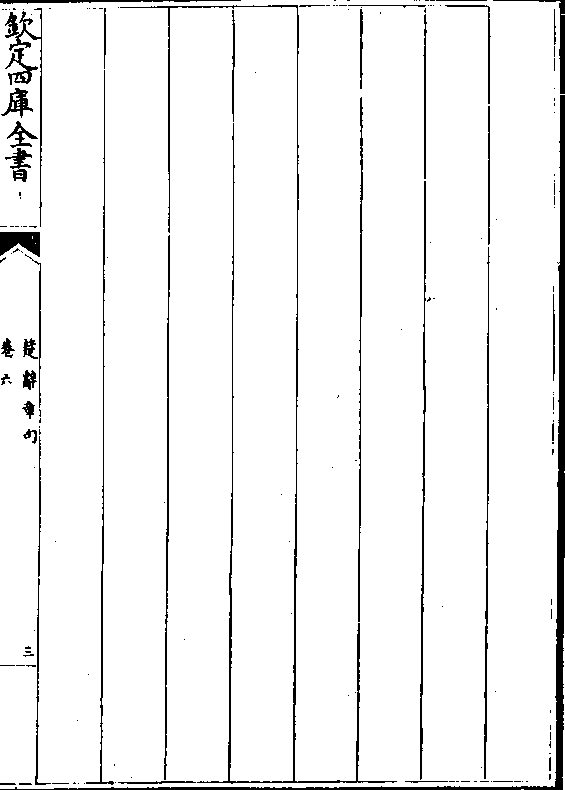 欽定四庫全書
楚辭章句
卷六
三